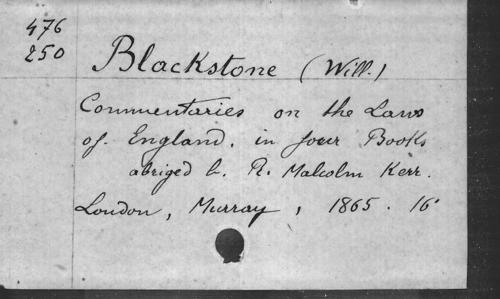 476
250
Blackstone (Will.)
Commentaries on the Laws
of England. in four Books
abriged b. R. Malcolm Kerr.
London, Murray, 1865. 16°